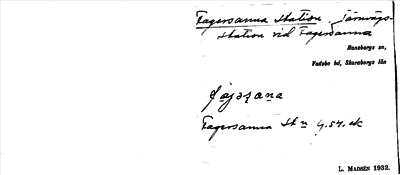 Fagersanna station. Järnvägs-
station vid Fagersanna
Ransbergs sn,
Vadsbo hd, Skaraborgs län
fajəṣana
Fagersanna st n 4.54. ek
L. MADSÉN 1932.